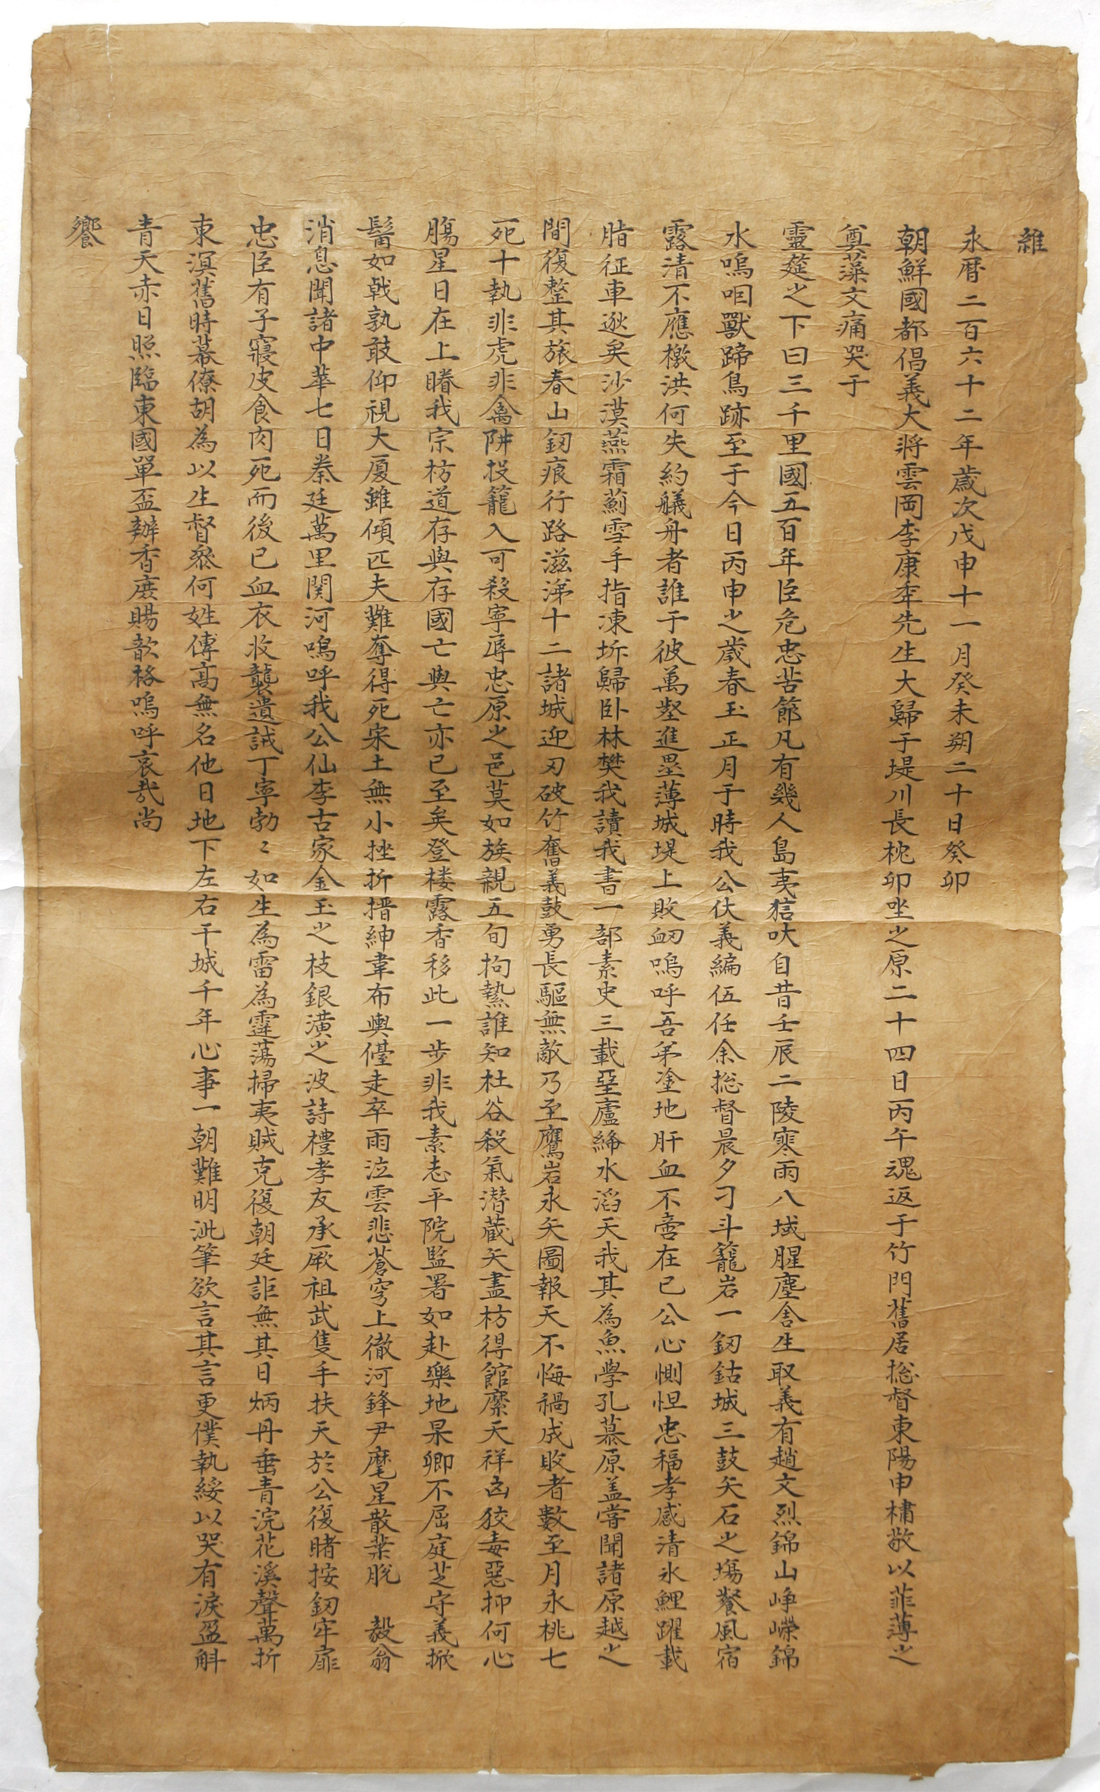 維
永曆二百六十二年歲次戊申十一月癸未朔二十日癸卯
朝鮮國都倡義大將雲岡李康秊先生大歸于堤川長枕卯坐之原二十四日丙午魂返于竹門舊居捴督東陽申橚敬以菲薄之
奠藻文痛哭于
靈筵之下曰三千里國五百年臣危忠苦節凡有幾人島夷狺吠自昔壬辰二陵寒雨八域腥塵舍生取義有趙文烈錦山崢嶸錦
水嗚咽獸蹄鳥跡至于今日丙申之歲春王正月于時我公伏義編伍任余捴督晨夕刁斗籠岩一釰鈷城三鼓矢石之塲餐風宿
露清不應檄洪何失約艤舟者誰于彼萬壑進壘薄城堤上敗衂嗚呼吾弟塗地肝血不啻在已公心惻怛忠福孝感清氷鯉躍載
脂征車逖矣沙漠燕霜薊雪手指凍坼歸卧林樊我讀我書一部素史三載堊廬綘水滔天我其為魚學孔慕原盖嘗聞諸原越之
間復整其旅春山釰痕行路滋涕十二諸城迎刃破竹奮義鼓勇長驅無敵乃至鷹岩永矢圖報天不悔禍成敗者數至月永桃七
死十執非虎非禽阱投籠入可殺寧辱忠原之邑莫如族親五旬拘縶誰知杜谷殺氣潜藏矢盡枋得館縻天祥凾狡毒惡抑何心
膓星日在上睠我宗枋道存與存國亡與亡亦已至矣登樓露香移此一步非我素志平院監署如赴樂地杲卿不屈庭芝守義掀
髯如戟孰敢仰視大廈雖傾匹夫難奪得死宋土無小挫折搢紳韋布輿儓走卒雨泣雲悲蒼穹上徹河鋒尹麾星散葉脫 毅翁
消息聞諸中華七日秦廷萬里関河嗚呼我公仙李古家金玉之枝銀潢之波詩禮孝友承厥祖武隻手扶天於公復睹按釰牢扉
忠臣有子寢皮食肉死而後已血衣收襲遺誡丁寧勃〻如生為雷為霆蕩掃夷賊克復朝廷詎無其日炳丹垂青浣花溪聲萬折
東溟舊時幕僚胡為以生督叅何姓傳髙無名他日地下左右干城千年心事一朝難明泚筆欲言其言更僕執綏以哭有淚盈斛
青天赤日照臨東國單盃辦香庶賜歆格嗚呼哀哉尚
饗